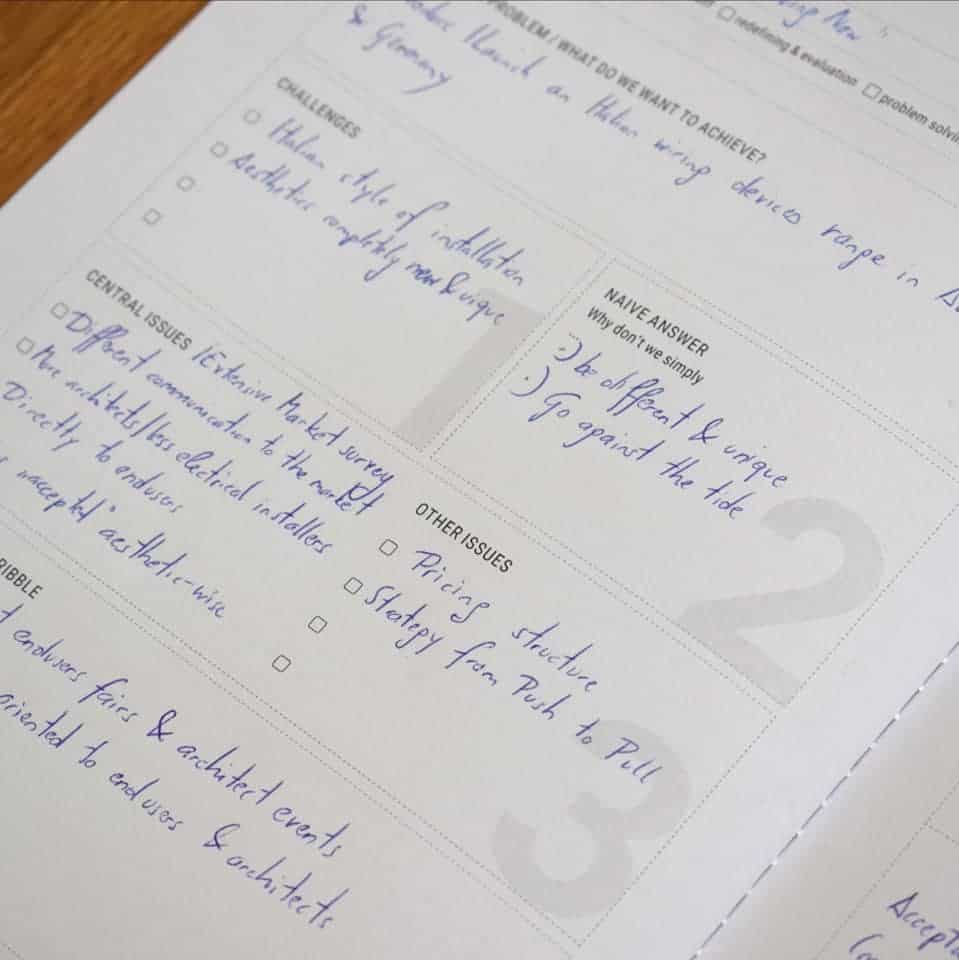 redefining & evaluation ☐ problem solvin
New
PROBLEM / WHAT DO WE WANT TO ACHIEVE?
an Italian wiring devices range in
& Germany
CHALLENGES
☐ Italian style of installation
☐ Aesthetics completely new & uique
☐
☐
NAIVE ANSWER
Why don't we simply
·) be different & unique
·) Go against the tide
2
1
CENTRAL ISSUES / Extensive Market survey
☐ Different communication to the market
☐ More architects/less electrical installers
Directly to endusers
"accepted" aesthetic-wise
OTHER ISSUES
☐ Pricing structure
☐ Strategy from Push to Pull
☐
☐
3
RIBBLE
endusers fairs & architect events
oriented to endusers & architects